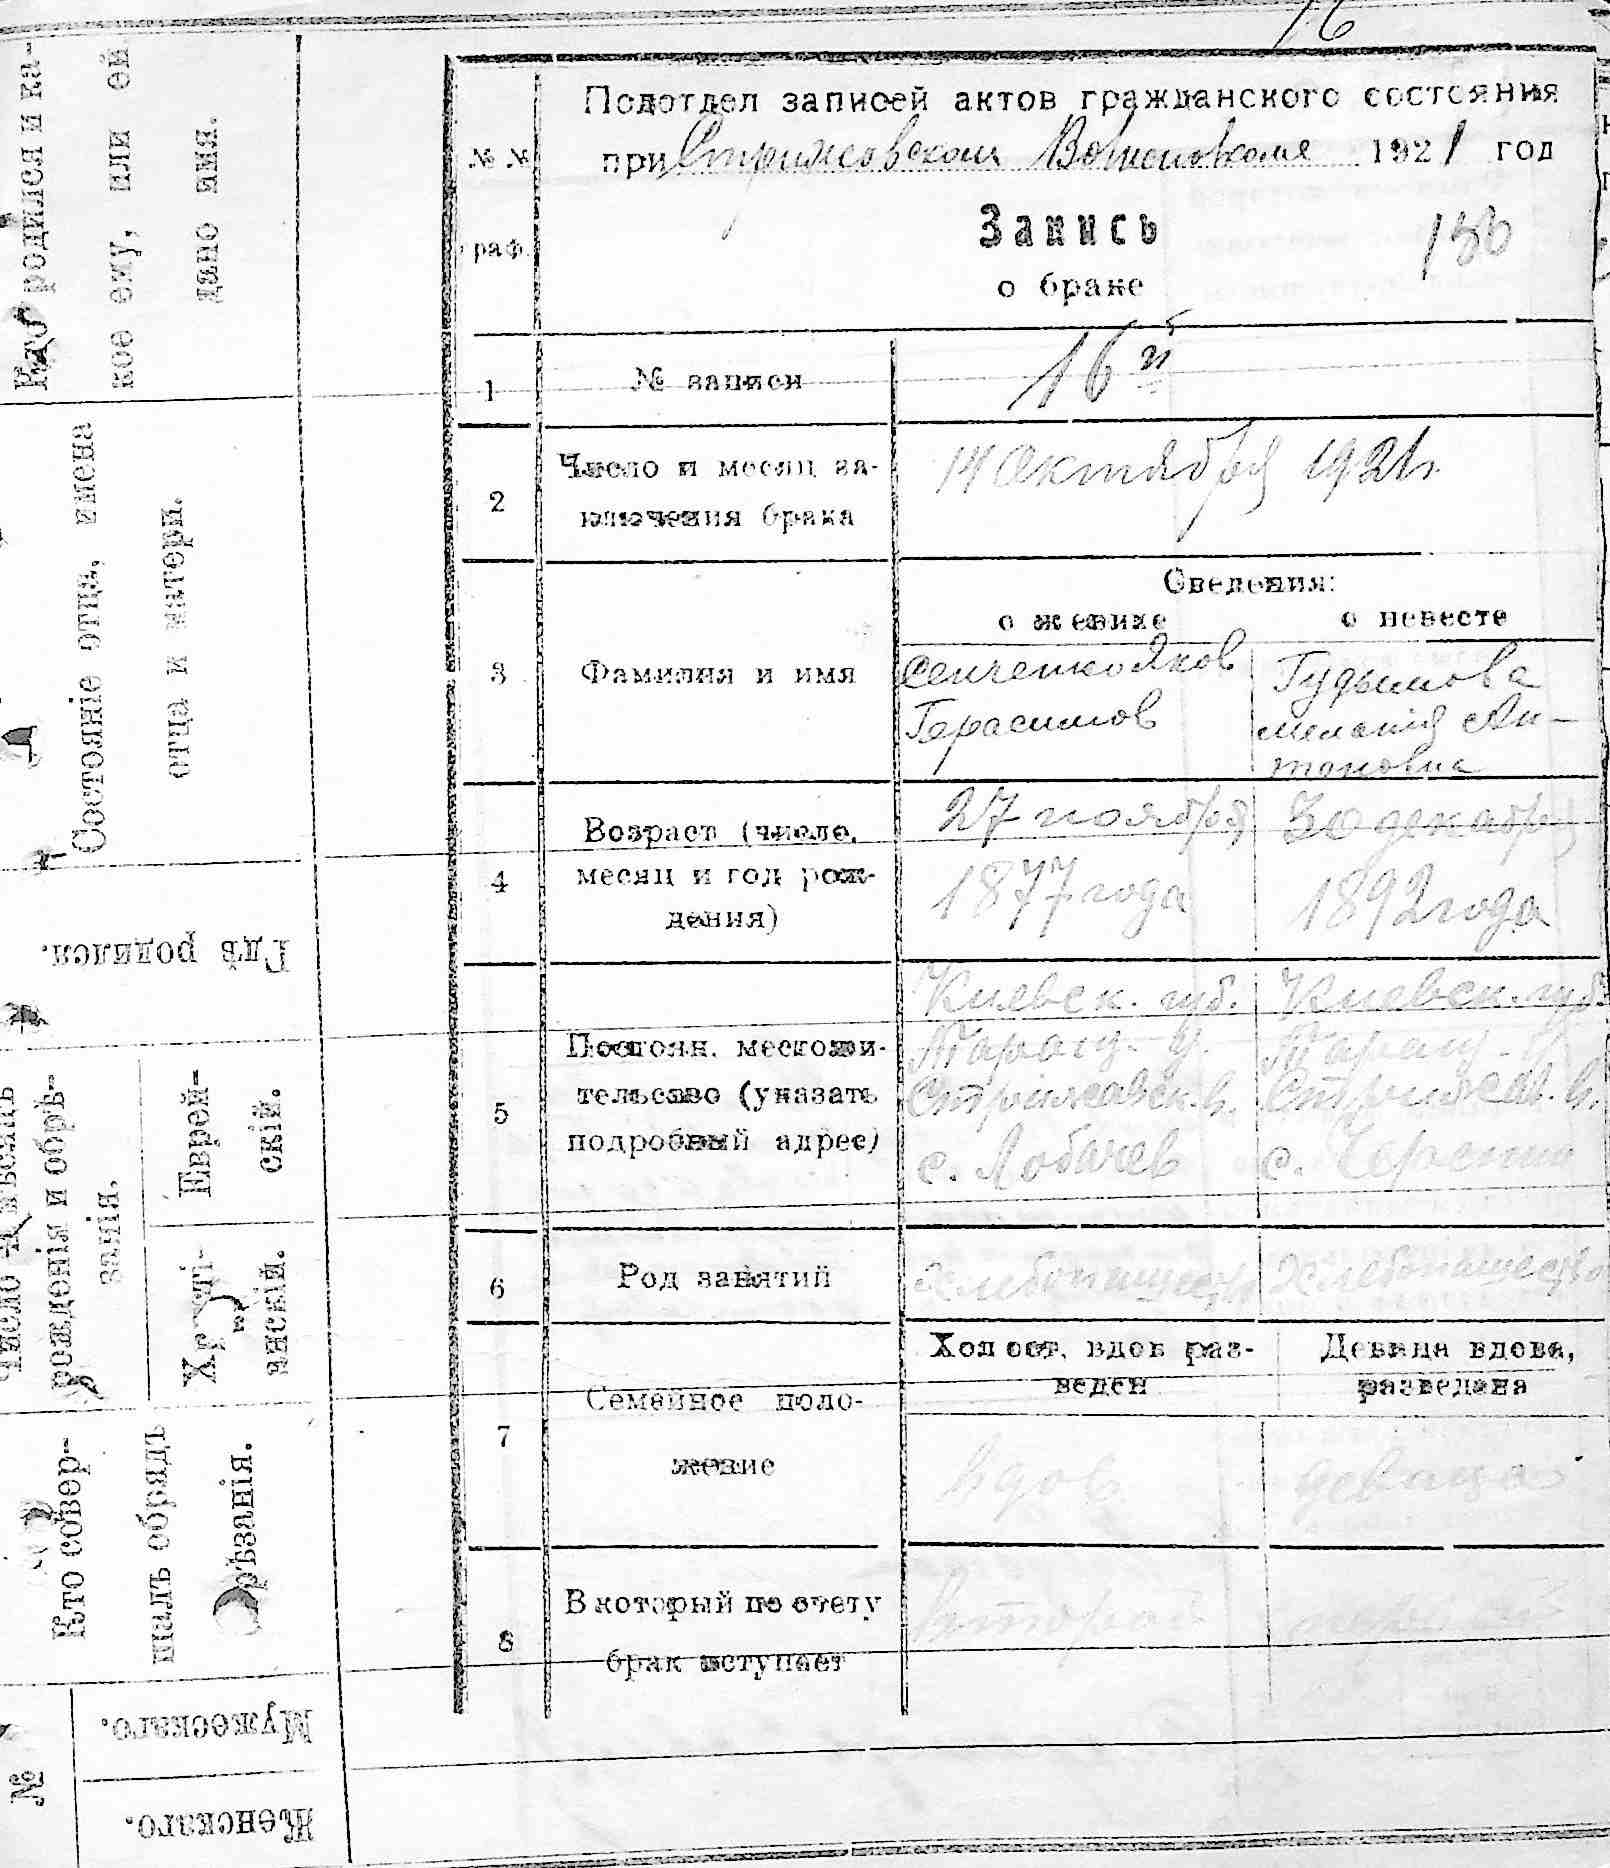 16
Подотдел записей актов гражданского состояния
при Стрижовском Волисполкоме 1921 год
№ №
граф.
Запись
156
о браке
1
№ записи
16й
2
Число и месяц за-
ключения брака
14 Октября 1921 г.
Сведения:
о женихе
о невесте
3
Фамилия и имя
Сенченко Яков
Герасимов
Гудымова
Мелания Ан-
тоновна
4
Возраст (число,
месяц и год рож-
дения)
27 ноября
1877 года
30 декабря
1892 года
5
Постоян. местожи-
тельство (указать
подробный адрес)
Киевск. губ.
Таращ. у.
Стрижавск. в.
с. Лобачев
Киевск. губ.
Таращ. у.
Стрижав. в.
с.
6
Род занятий
Хлебопашество
Хлебопашество
7
Семейное поло-
жение
Холост, вдов раз-
веден
Девица вдова,
разведена
вдов
девица
8
В который по счету
брак вступает
второй
первый
Кто родился и ка-
кое ему, или ей
дано имя.
Состояніе отца, имена
отца и матери.
Гдѣ родился.
Число и мѣсяцъ
рожденія и обрѣ-
занія.
Еврей-
скій.
Христі-
анскій.
Кто совер-
шалъ обрядъ
обрѣзанія.
№
Мужескаго.
Женскаго.